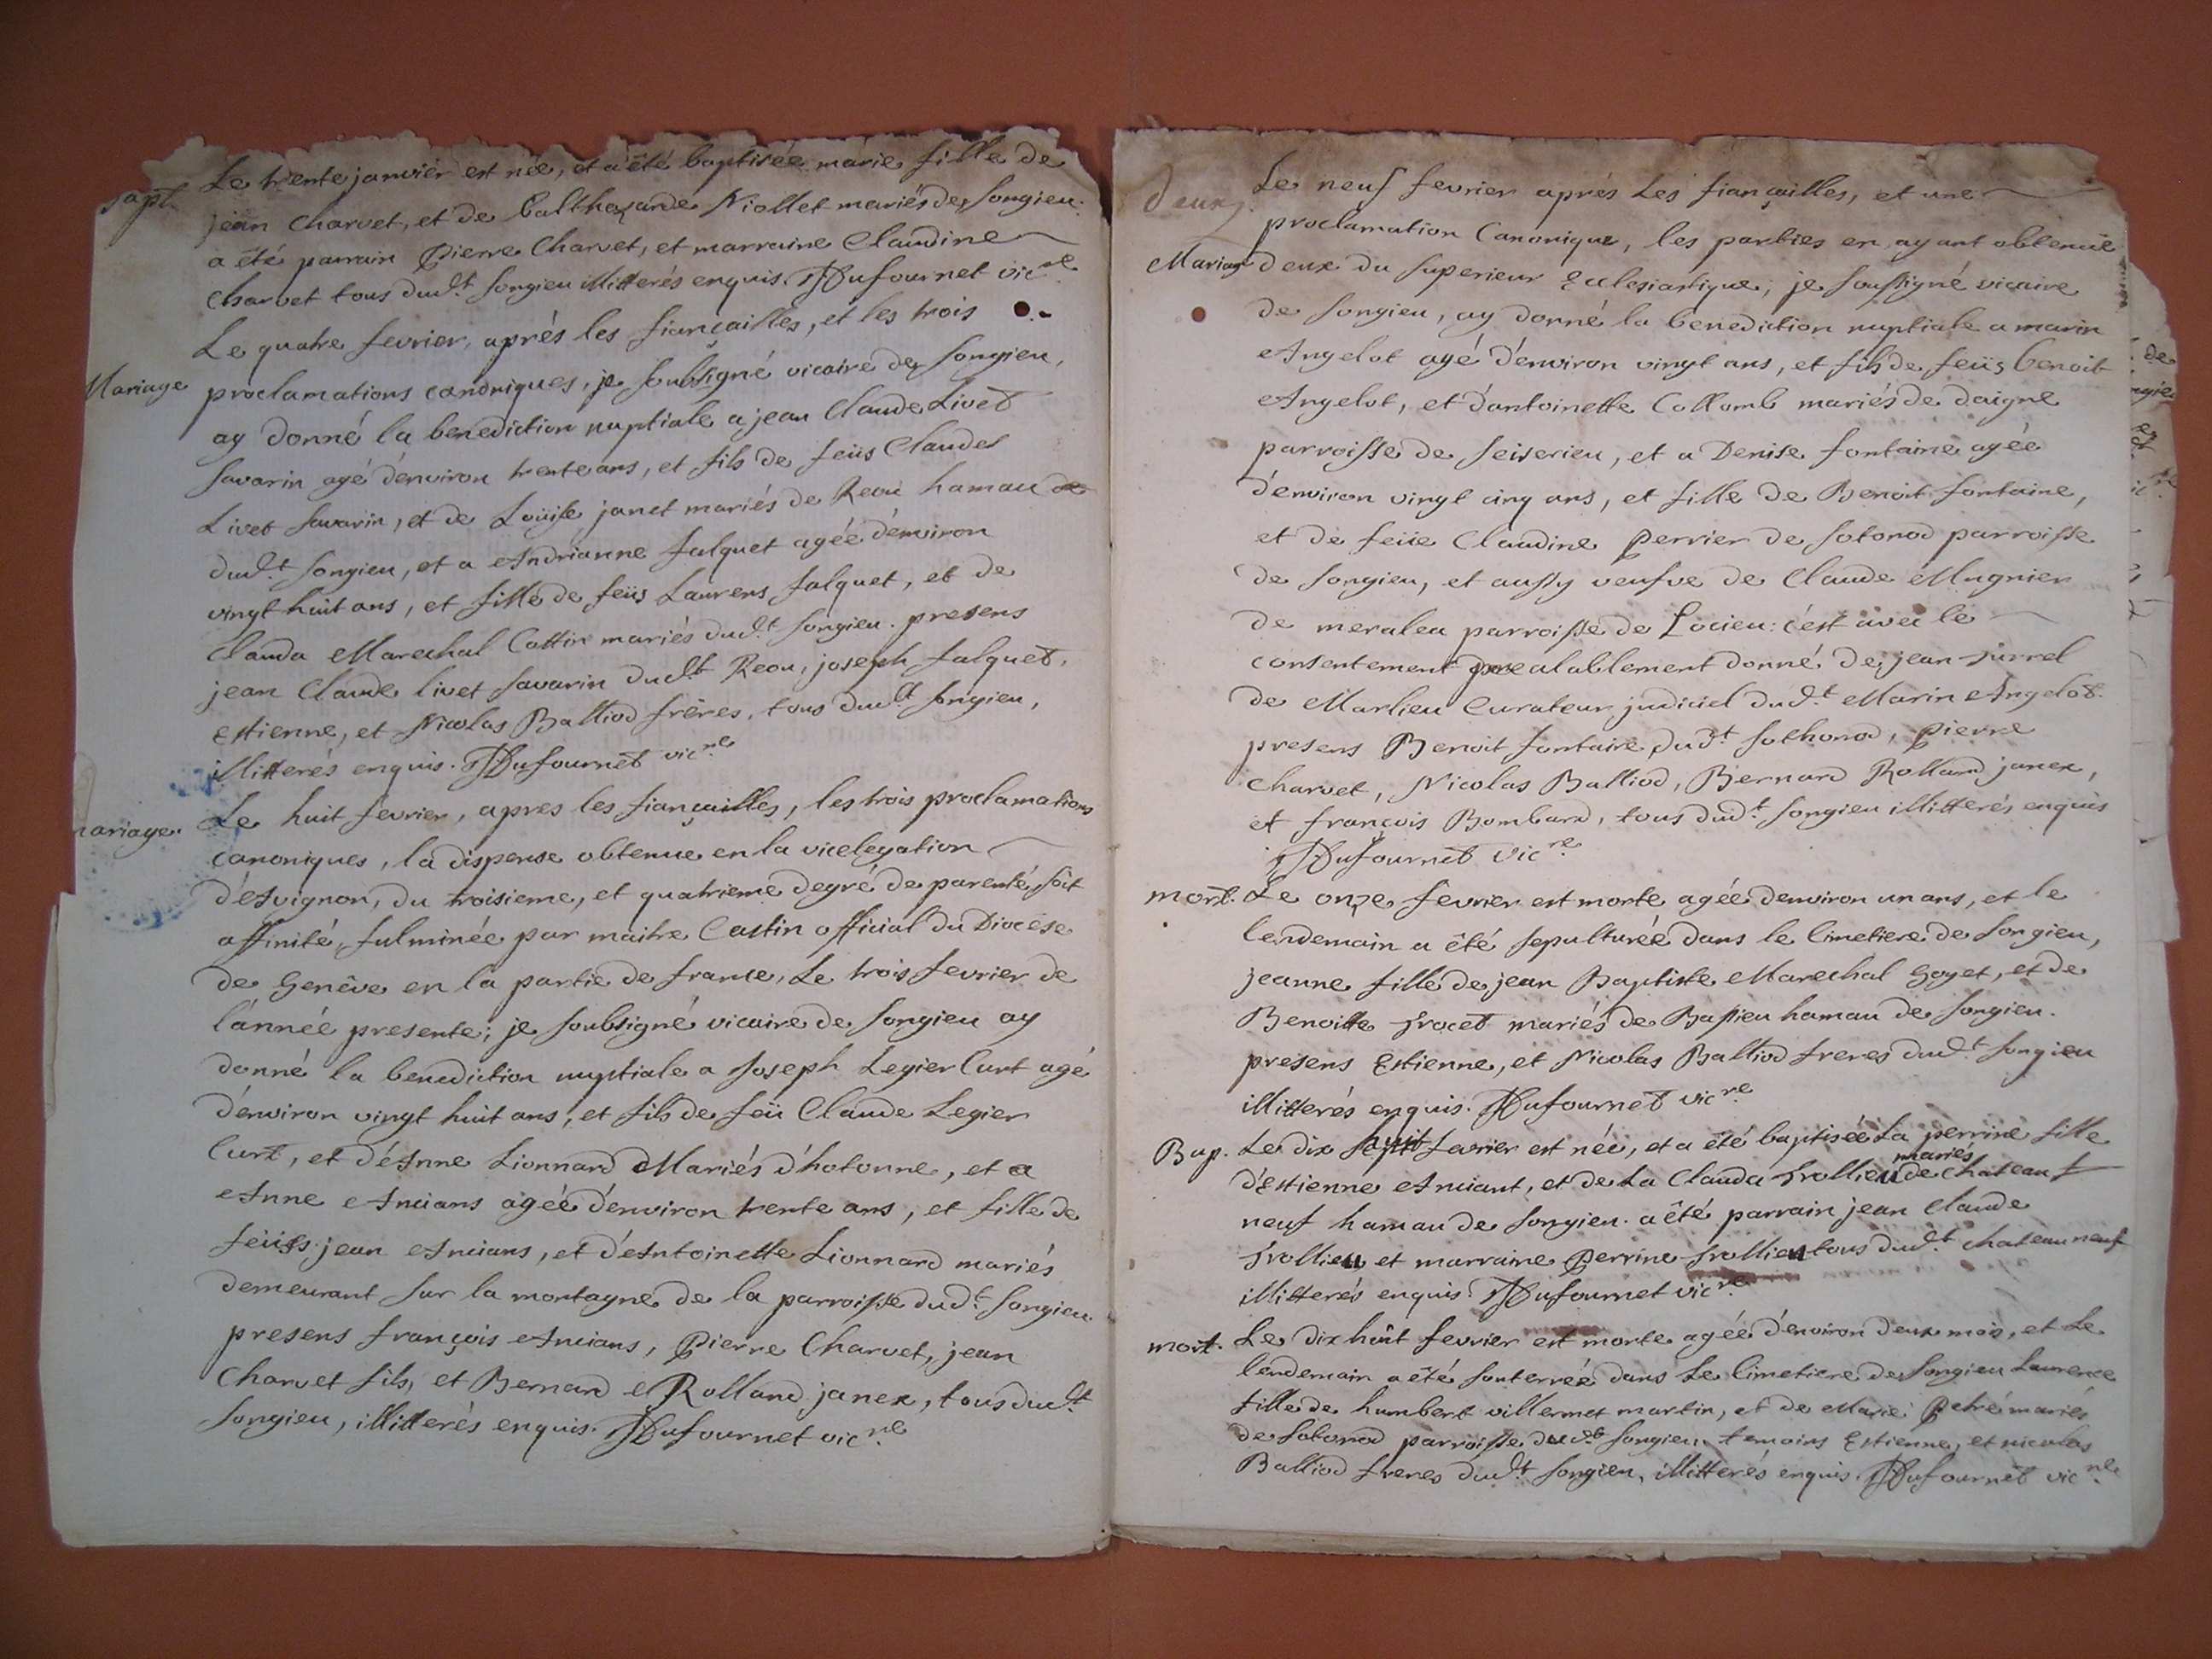 Bapt. Le trente janvier est née, et a été baptisée marie fille de
jean Charvet, et de Balthazarde Niollet mariés de Songieu.
a été parrain Pierre Charvet, et marraine Claudine
Charvet tous dud.t Songieu illitterés enquis. Dufournet vic.re
Le quatre fevrier, aprés les fiançailles, et les trois
Mariage proclamations canoniques, je soubsigné vicaire de Songieu,
ay donné la benediction nuptiale a jean Claude Livet
Savarin agé d'environ trente ans, et fils de feüs Claudes
Livet Savarin, et de Loüise janet mariés de Reou hamau
dud.t Songieu, et a Andrianne falquet agée d'environ
vingt huit ans, et fille de feüs Laurens falquet, et de
Clauda Marechal Cottin mariés dud.t Songieu. presens
jean Claude livet Savarin dud.t Reou, joseph falquet,
Estienne, et Nicolas Balliod frères, tous dud.t Songieu,
illitterés enquis. Dufournet vic.re
mariage. Le huit fevrier, apres les fiançailles, les trois proclamations
canoniques, la dispense obtenue en la vicelegation
d'Avignon, du troisieme, et quatrieme degré de parenté, soit
affinité, fulminée par maitre Castin official du Diocèse
de Genêve en la partie de france, Le trois fevrier de
l'année presente; je soubsigné vicaire de Songieu ay
donné la benediction nuptiale a Joseph Legier Curt agé
d'environ vingt huit ans, et fils de feü Claude Legier
Curt, et d'Anne Lionnard Mariés d'hotonne, et a
Anne Ancians agée d'environ trente ans, et fille de
feüs jean Ancians, et d'Antoinette Lionnard mariés
demeurant sur la montagne de la parroisse dud.t Songieu.
presens françois Ancians, Pierre Charvet, jean
Charvet fils, et Bernard Rolland janex, tous dud.t
Songieu, illitterés enquis. Dufournet vic.re
deux.
Le neuf fevrier aprés Les fiançailles, et une
proclamation Canonique, les parties en ayant obtenüe
Mariage deux du superieur Ecclesiastique; je soussigné vicaire
de Songieu, ay donné la benediction nuptiale a marin
Angelot agé d'environ vingt ans, et fils de feüs benoit
Angelot, et d'antoinette Collomb mariés de daigne
parroisse de Seiserieu, et a Denise fontaine agée
d'environ vingt cinq ans, et fille de Benoit fontaine,
et de feüe Claudine Perrier de Sotonod parroisse
de Songieu, et aussy veufve de Claude Mugnier
de meraleu parroisse de Locieu: c'est avec le
consentement prealablement donné de jean jurrel
de Marlieu Curateur judiciel dud.t Marin Angelot.
presens Benoit fontaine dud.t Sothonod, Pierre
Charvet, Nicolas Balliod, Bernard Rolland janex,
et françois Bombard, tous dud.t Songieu illitterés enquis
Dufournet vic.re
mort. Le onze fevrier est morte agée denviron un ans, et le
lendemain a êté sepulturée dans le Cimetiere de Songieu,
jeanne fille de jean Baptiste Marechal Goyet, et de
Benoitte frocet mariés de Bassieu hamau de Songieu.
presens Estienne, et Nicolas Balliod freres dud.t Songieu
illitterés enquis. Dufournet vic.re
Bap. Le dix huit fevrier est née, et a été baptisée La perrine fille
d'Estienne Anciant, et de La Clauda frollieu mariés de Chateau
neuf hamau de Songieu. a êté parrain jean Claude
frollieu et marraine Perrine frollieu tous dud.t chateauneuf
illitterés enquis Dufournet vic.re
mort. Le dix huit fevrier est morte agée d'environ deux mois, et Le
lendemain a été sonterrée dans Le Cimetiere de Songieu Laurence
fille de humbert villermet martin, et de Marie Petré mariés
de Sotonod parroisse dud.t Songieu temoins Estienne, et nicolas
Balliod freres dud.t Songieu, illitterés enquis. Dufournet vic.re